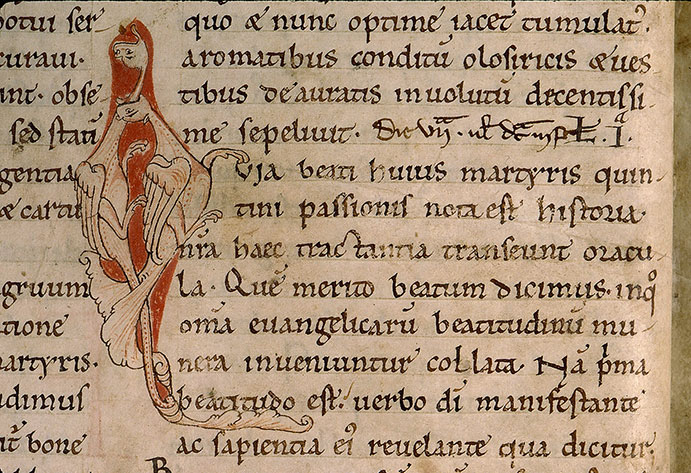 otui ser
curaui.
int. obse
sed statū
gentia
& cartu
gruum
tione
artyris.
dimus
bone
quo & nunc optime iacet tumulat᷒.
aromatibus conditū olosiricis & ues
tibus deauratis inuolutū decentissi
me sepeliuit.
uia beati huius martyris quin
tini passionis nota est historia.
nr̄a haec tractantia transeunt oracu
la. Quē merito beatum dicimus. in q̊
om̄a euangelicarū beatitudinū mu
nera inueniuntur collata. Nā p̄ma
beatitudo est. uerbo dī manifestante
ac sapientia ei᷒ reuelante qua dicitur.